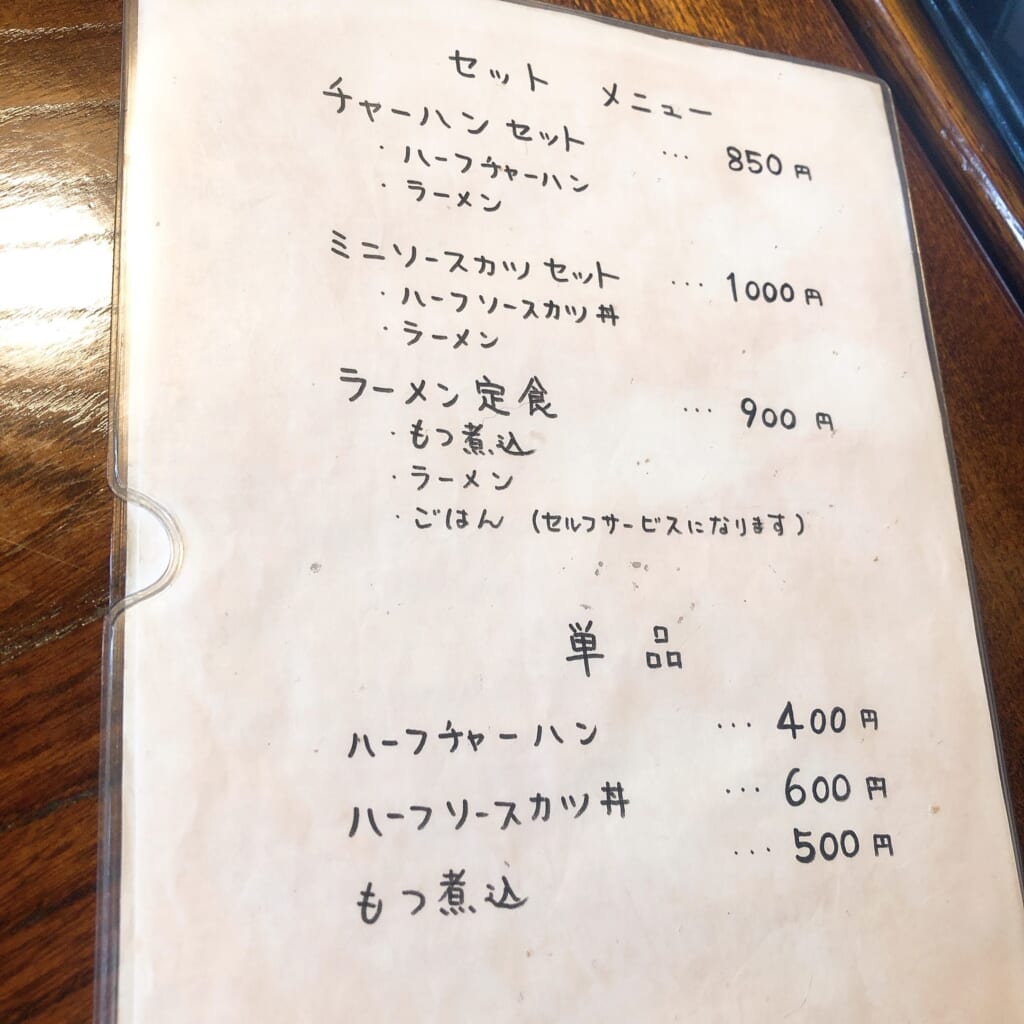 セット メニュー
チャーハンセット ... 850円
・ハーフチャーハン
・ラーメン
ミニソースカツセット ... 1000円
・ハーフソースカツ丼
・ラーメン
ラーメン定食 ... 900円
・もつ煮込
・ラーメン
・ごはん (セルフサービスになります)
単品
ハーフチャーハン ... 400円
ハーフソースカツ丼 ... 600円
もつ煮込 ... 500円